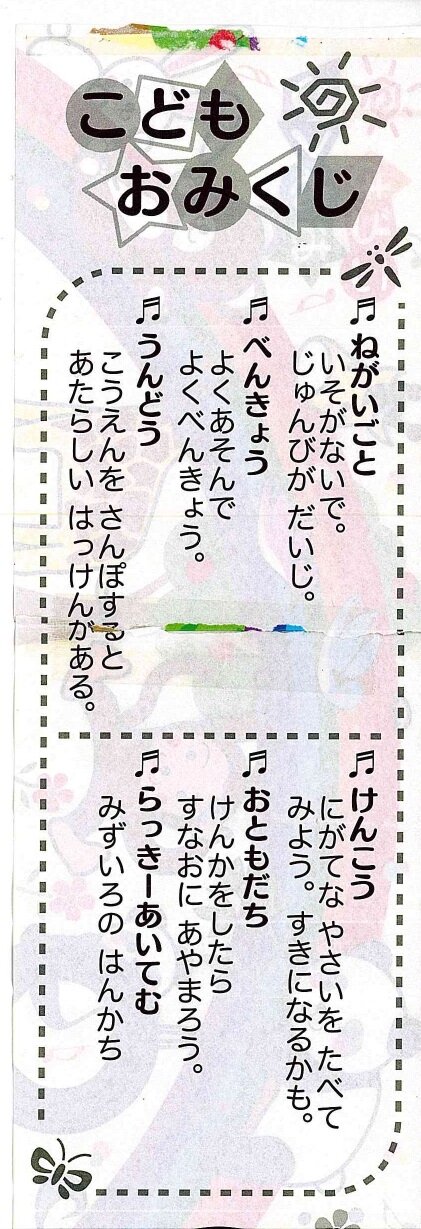 こども
おみくじ
♬ねがいごと
いそがないで。
じゅんびが だいじ。
♬べんきょう
よくあそんで
よくべんきょう。
♬うんどう
こうえんを さんぽすると
あたらしい はっけんがある。
♬けんこう
にがてな やさいを たべて
みよう。すきになるかも。
♬おともだち
けんかをしたら
すなおに あやまろう。
♬らっきーあいてむ
みずいろの はんかち